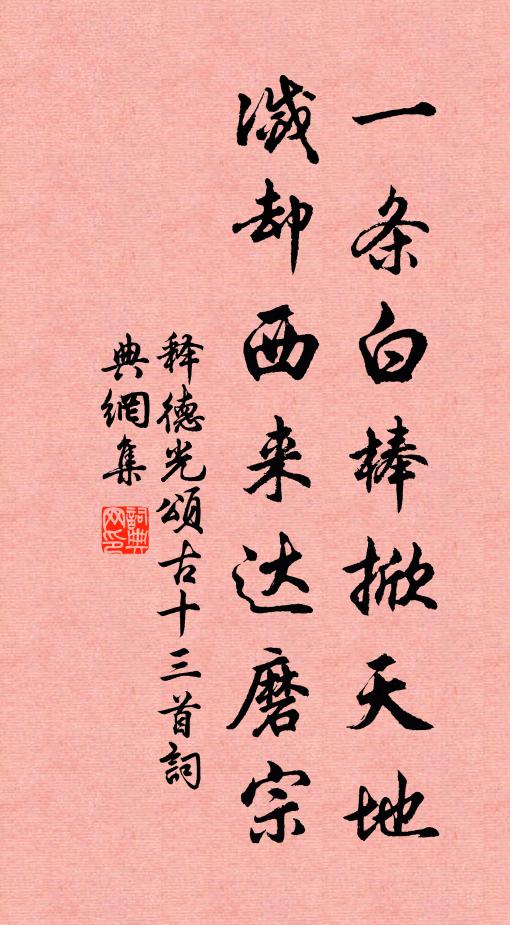 一条白棒掀天地
滅却西来达磨宗
释德光颂古十三首詞
典網集
詞典网印